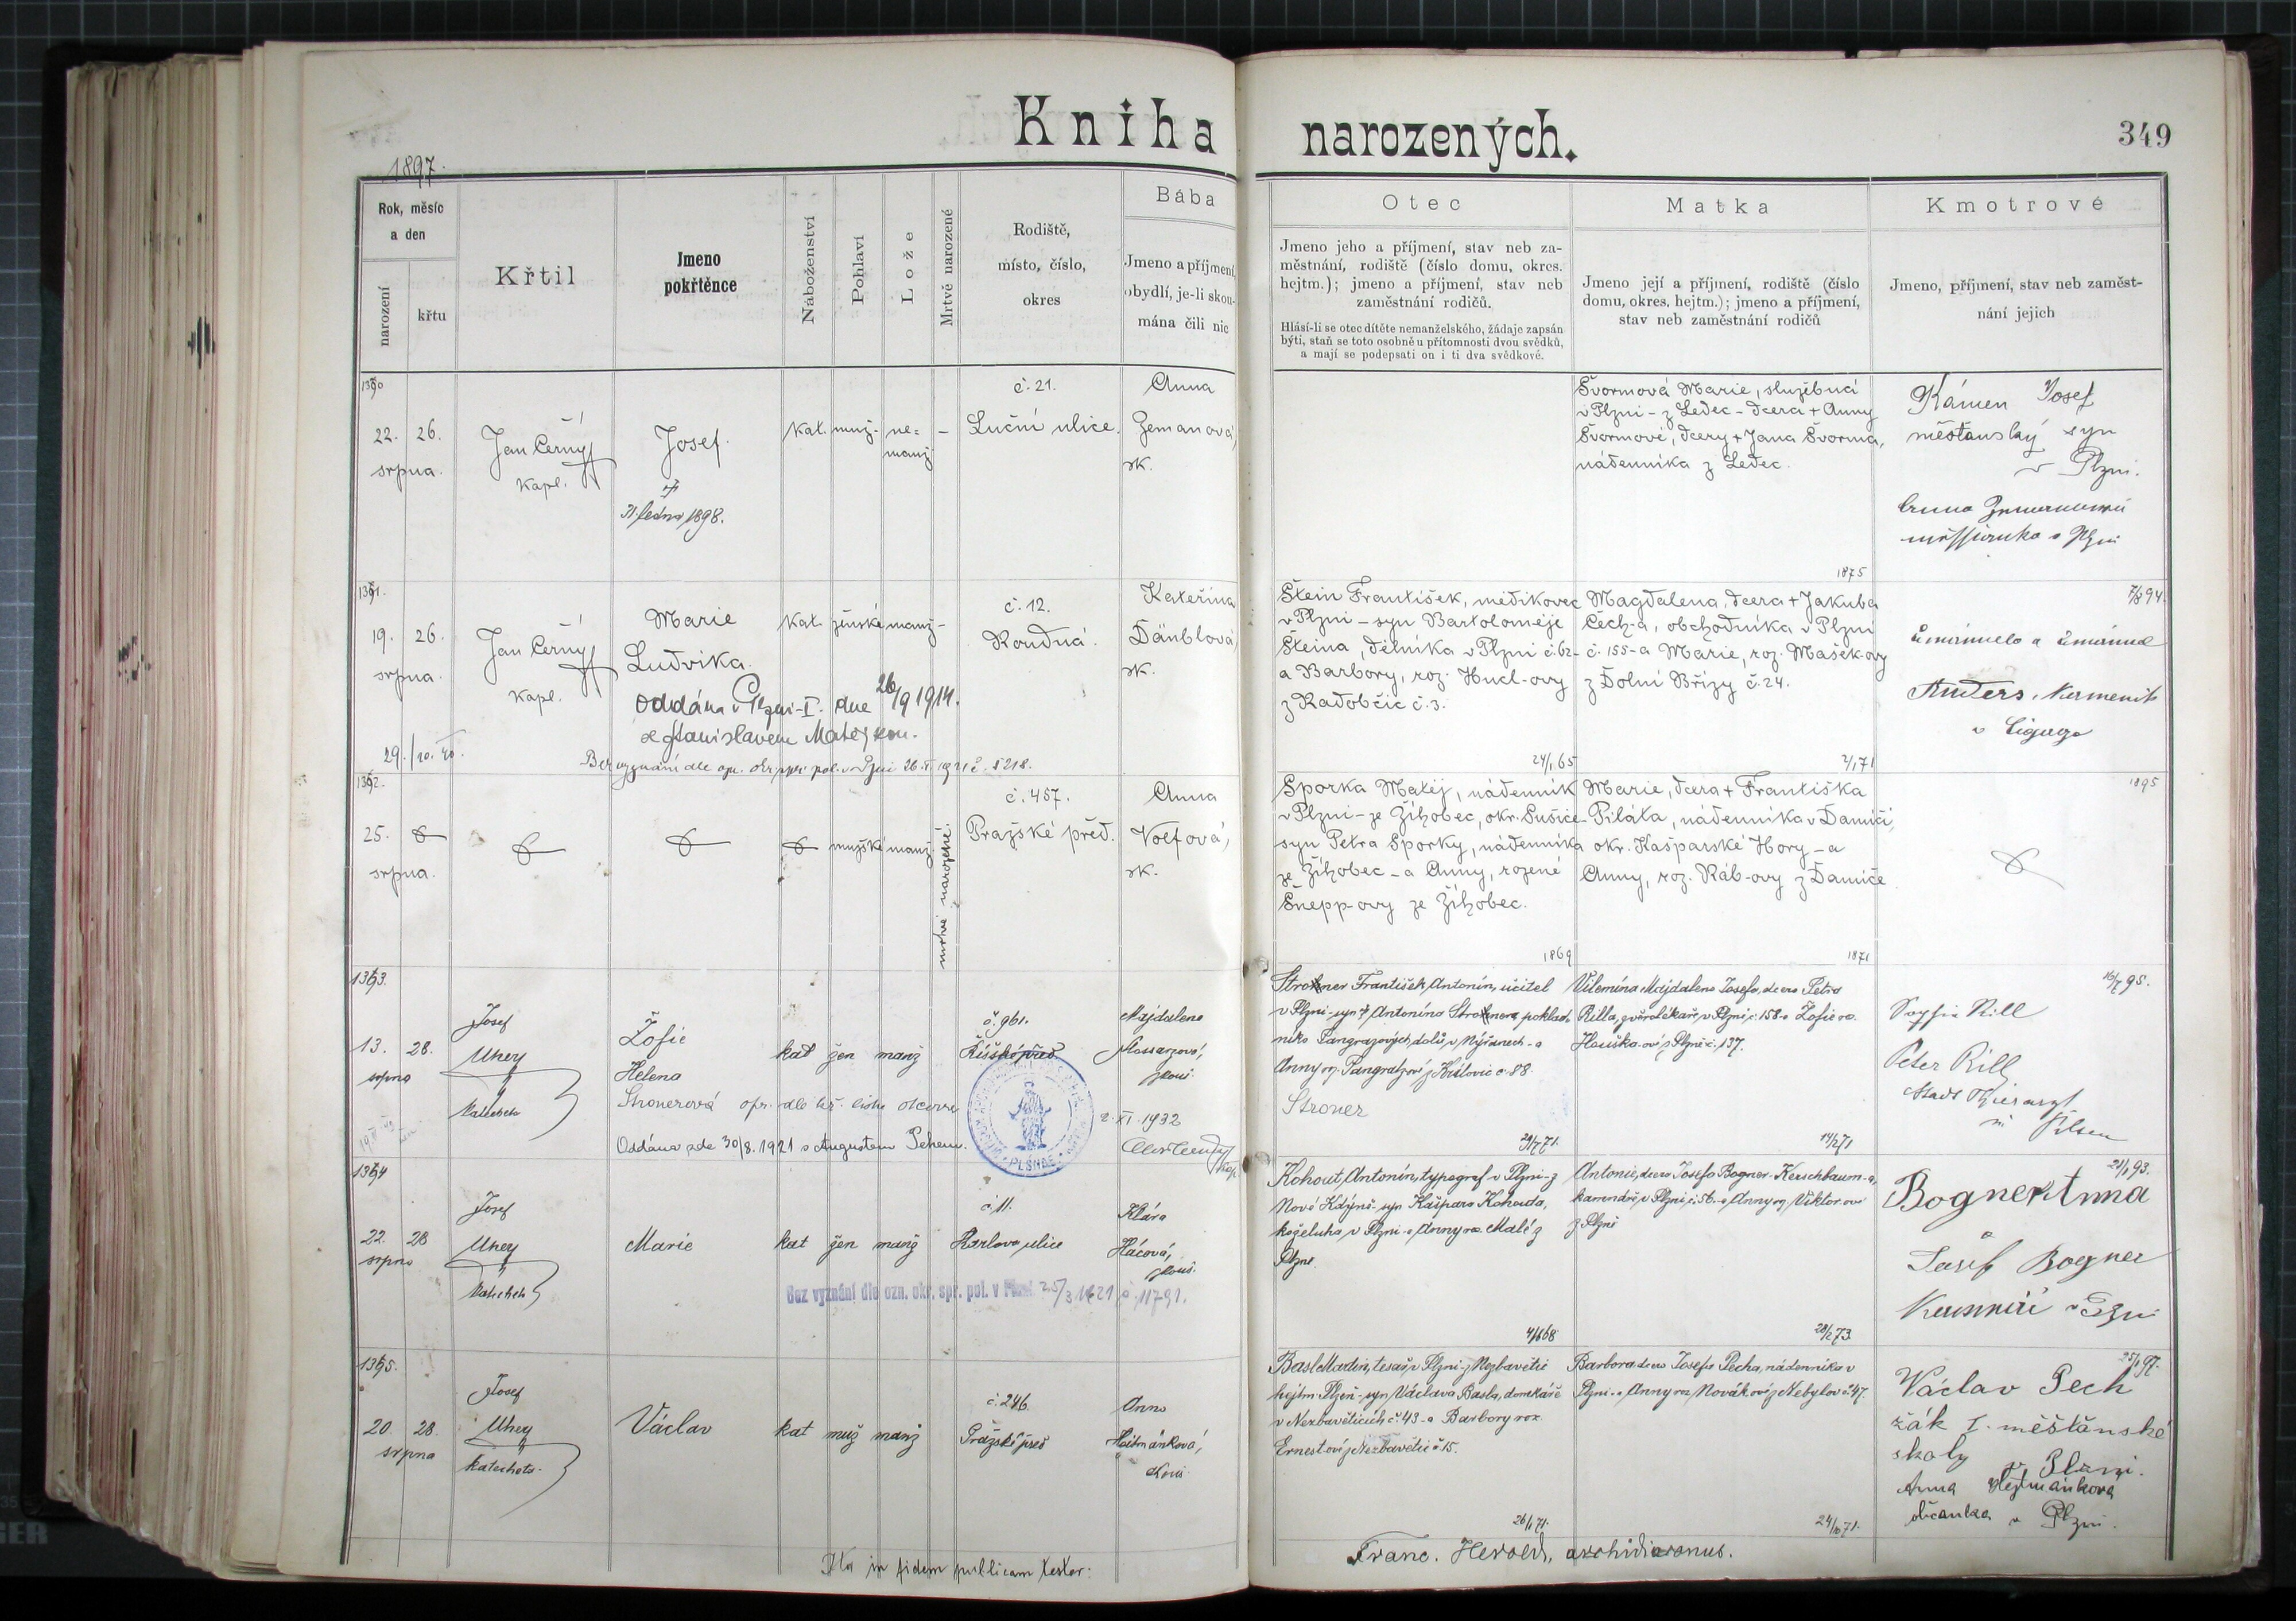 Kniha narozených.
349
1897.
Rok, měsíc
a den
narození
křtu
Křtil
Jmeno
pokřtěnce
Náboženství
Pohlaví
Lože
Mrtvě narozené
Rodiště,
místo, číslo,
okres
Bába
Jmeno a příjmení,
obydlí, je-li skou-
mána čili nic
Otec
Jmeno jeho a příjmení, stav neb za-
městnání, rodiště (číslo domu, okres.
hejtm.); jmeno a příjmení, stav neb
zaměstnání rodičů.
Hlásí-li se otec dítěte nemanželského, žádaje zapsán
býti, staň se toto osobně u přítomnosti dvou svědků,
a mají se podepsati on i ti dva svědkové.
Matka
Jmeno její a příjmení, rodiště (číslo
domu, okres. hejtm.); jmeno a příjmení,
stav neb zaměstnání rodičů
Kmotrové
Jmeno, příjmení, stav neb zaměst-
nání jejich
22. 26.
srpna.
Jan Černý
kapl.
Josef.
31. ledna 1898.
kat. muž. ne=
manž
č. 21.
Luční ulice.
Anna
Zemanová,
zk.
Švormová Marie, služebná
v Plzni - z Ledec - dcera + Anny
Švormové, dcery + Jana Švorma,
nádenníka z Ledec.
1875
Kámen Josef
měšťanský syn
v Plzni.
19. 26.
srpna.
Jan Černý
kapl.
Marie
Ludvika.
Oddána v Plzni-I. dne 26/9 1914.
se Stanislavem
kat. ženské manž-
č. 12.
Roudná.
Kateřina
Däublová,
zk.
Štein František, mědikovec
v Plzni - syn Bartoloměje
Šteina, dělníka v Plzni č. 62-
a Barbory, roz. Hucl-ovy
z Radobčic č. 3.
24/1 65
Magdalena, dcera + Jakuba
Čech-a, obchodníka v Plzni
č. 155-a Marie, roz. Mašek-ovy
z Dolní Břízy č. 24.
2/1 71
7/8 94.
Anders
25.
srpna.
mužské manž.
mrtvě narozené.
č. 457.
Pražské před.
Anna
Volfová,
zk.
Sporka Matěj, nádenník
v Plzni - ze Žíhobec, okr. Sušice
syn Petra Sporky, nádenníka
ze Žíhobec - a Anny, rozené
Šnepp-ovy ze Žíhobec.
1869
Marie, dcera + Františka
Piláta, nádenníka v Damíči,
okr. Kašparské Hory - a
Anny, roz. Ráb-ovy z Damíče
1871
1895
13. 28.
srpna
Josef
Uhey
Žofie
Helena
Stronerová
Oddána zde 30/8. 1921 s Augustem Pehem.
kat žen manž
č. 961.
PLSNAE
Majdalena
2. XI. 1932
František Antonín, učitel
v Plzni - syn + Antonína
Anny roz. Pangratzové z Křišovic č. 88.
Stroner
Vilemína Majdalena Josefa, dcera Petra
Rilla, zvěrolékaře v Plzni č. 158-a Žofie roz.
Houška-ové z Plzně č. 137.
14/2 71
16/7 95.
Sophie Rill
Peter Rill
Stadt Thierarzt
in Pilsen
22. 28
srpna
Josef
Uhey
Katecheta
Marie
kat žen manž
č. 11.
Karlova ulice
Klára
Hácová,
Bez vyznání dle ozn. okr. spr. pol. v Plzni 25/3. 1921 č. 11791.
Kohout Antonín, typograf v Plzni - z
Nové Kdýně - syn Kašpara Kohouta,
koželuha v Plzni - a Anny roz. Malé z
Plzně.
4/6 68
Antonie, dcera Josefa Bogner-Kerschbaum-a,
v Plzni č. 56.-a Anny roz. Viktor-ové
z Plzně
28/2 73
21/1 93.
Bogner Anna
Josef Bogner
20. 28.
srpna
Josef
Uhey
katecheta.
Václav
kat muž manž
č. 246.
Pražské před
Anna
Heitmánková,
Basl Martin, tesař v Plzni - z Nezbavětic
hejtm. Plzeň - syn Václava Basla, domkáře
v Nezbavěticích č. 43 - a Barbory roz.
Ernestové z Nezbavětic č. 15.
26/1 71.
Barbora dcera Josefa Pecha, nádenníka v
Plzni - a Anny roz. Novákové z Nebylov č. 47.
24/10 71.
25/1 97.
Václav Pech
žák I. měšťanské
školy v Plzni.
Anna Hejtmánková
občanka v Plzni.
Ita in fidem publicam testor:
Franc. Herold, archidiaconus.